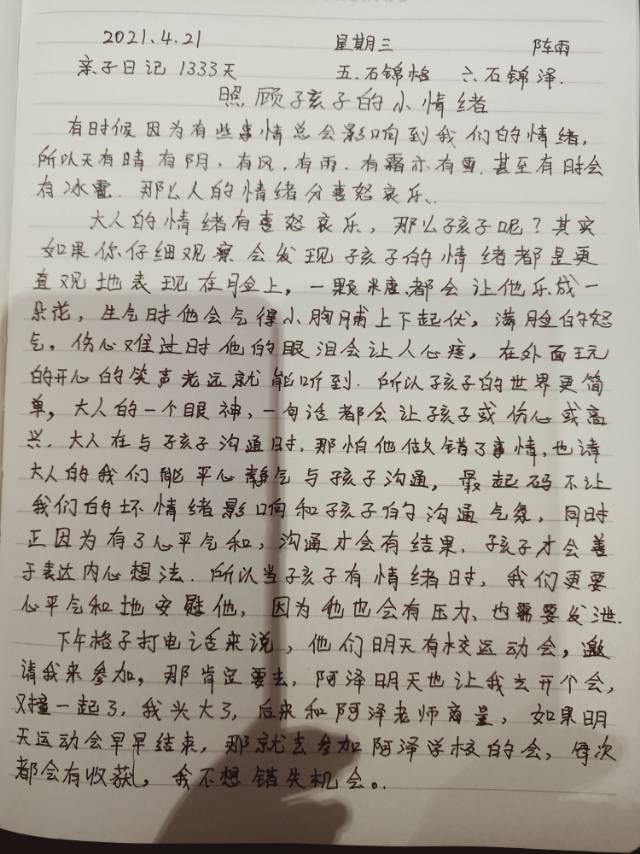 2021.4.21 星期三 阵雨
亲子日记 1333天 五.石锦格 六石锦泽.
照顾孩子的小情绪
有时候因为有些事情总会影响到我们的情绪,
所以天有晴有阴.有风.有雨.有霜亦有雪.甚至有时会
有冰雹.那么人的情绪分喜怒哀乐、
大人的情绪有喜怒哀乐,那么孩子呢?其实
如果你仔细观察会发现孩子的情绪都是更
直观地表现在脸上,一颗米糖.都会让他乐成一
朵花,生气时他会气得小胸脯上下起伏,满脸的怒
气.伤心难过时他的眼泪会让人心疼,在外面玩
的开心的笑声老远就能听到.所以孩子的世界更简
单,大人的一个眼神,一句话都会让孩子或伤心或高
兴.大人在与孩子沟通时.那怕他做错了事情,也请
大人的我们能平心静气与孩子沟通,最起码不让
我们的坏情绪影响和孩子的沟通气氛,同时
正因为有了心平气和,沟通才会有结果.孩子才会善
于表达内心想法.所以当孩子有情绪时,我们更要
心平气和地安慰他,因为他也会有压力、也需要发泄.
下午格子打电话来说,他们明天有校运动会,邀
请我来参加,那肯定要去,阿泽明天也让我去开个会,
又撞一起了,我头大了,后来和阿泽老师商量,如果明
天运动会早早结束,那就去参加阿泽学校的会,每次
都会有收获,我不想错失机会。.